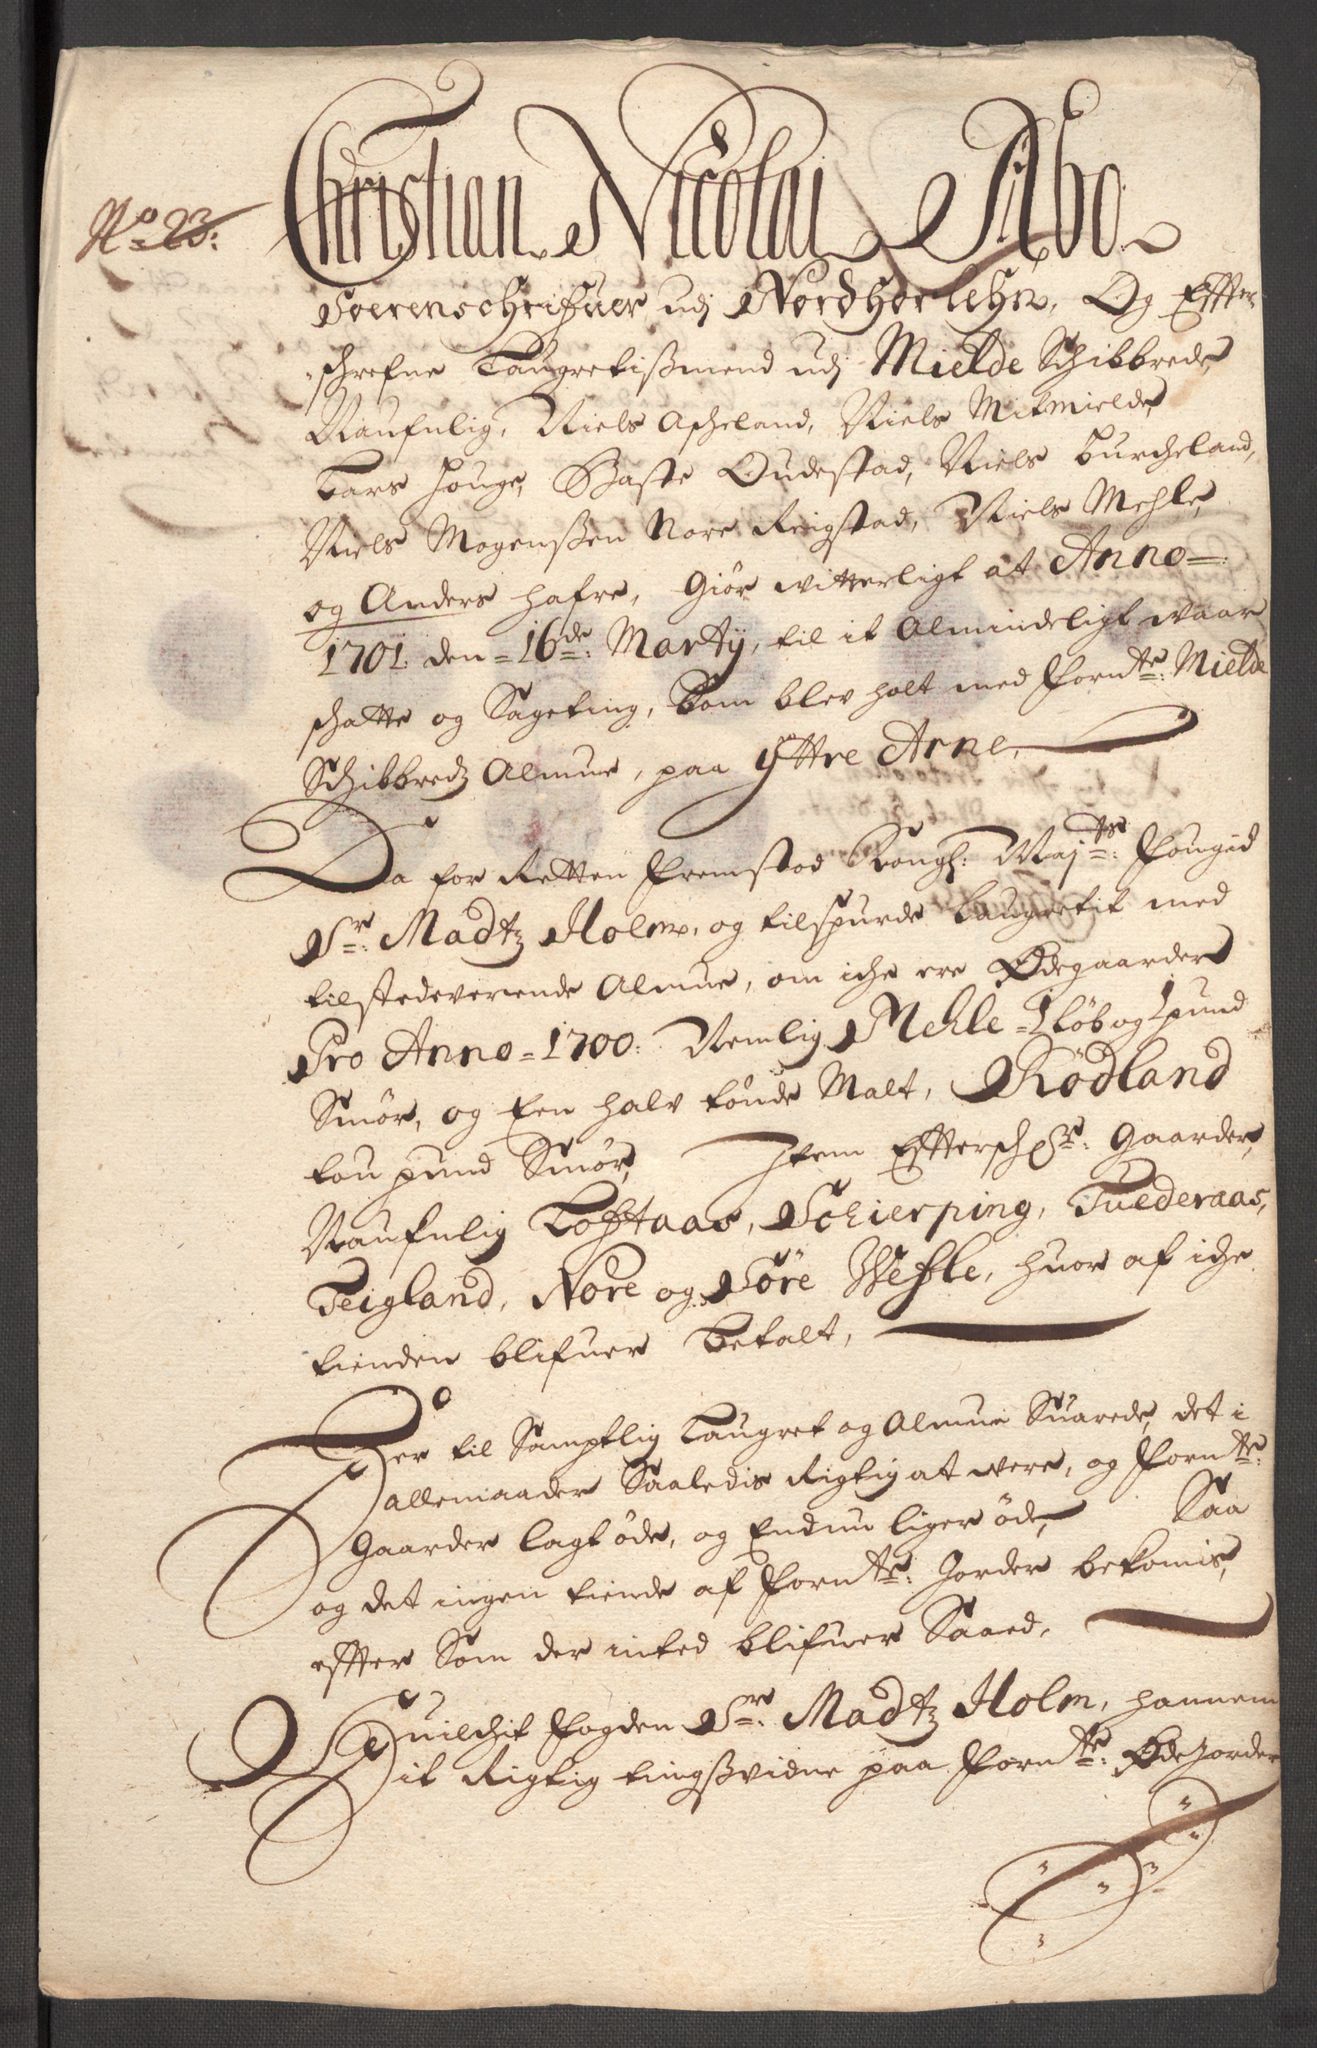 No 23:
Christian Nicolai Abo
Soerenschrifuer udj Nordhorlehn, Og Effter
schrefne Laugretißmend udj Mielde Schibbrede,
Naufnlig, Niels Asheland, Niels Mitmielde,
Lars Houge, Baste Oudestad, Niels Burcheland,
Niels Mogenßen Nore Reigstad, Niels Mehle,
og Anders Hafre, Giør witterligt at Anno
1701 den 16de: Martij, til it Almindeligt waar
schatte og Sageting, Som blev holt med Fornte: Mielde
Schibbredz Almue, paa Yttre Arne,
Da for Retten fremstod Kongl: Maj:ts Fougid
Sr: Madtz Holm, og tilspurde Laugretit med
tilstedeverende Almue, om iche ere Ødegaarder
Pro Anno 1700: Nemlig Mehle 1 løb og 1 pund
Smør, og Een halv tønde Malt, Rödland
tou pund Smør, Item Effterschr: Gaarder,
Naufnlig Toftaas, Schierping, Tuederaas,
Teigland, Nore og Søre Wefle, huor af iche
tienden blifuer betalt,
Der til Samptlig Laugret og Almue Suarede, det i
allemaader Saaledis Rigtig at were, og Fornte:
Gaarder lagt øde, og Endnu liger øde, Saa
og det ingen tiende af Fornte: Jorder bekomis,
effter Som der inted blifuer Saaed,
Huilchit Fogden Sr: Madtz Holm, hannem
it Rigtig tingßvidne paa Fornte: Øde Jorder